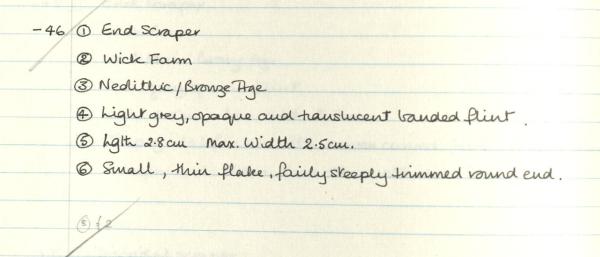 -46 ① End Scraper
② Wick Farm
③ Neolithic/Bronze Age
④ Light grey, opaque and translucent banded flint.
⑤ Lgth 2.8cm Max. Width 2.5cm.
⑥ Small, thin flake, fairly steeply trimmed round end.